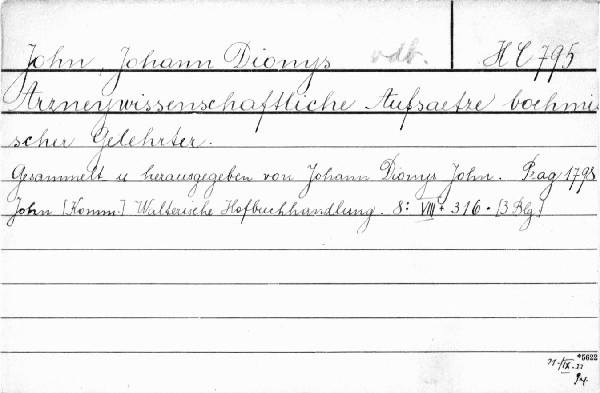 John, Johann Dionys odb. HC 795
Arzneywissenschaftliche Aufsaetze boehmi
scher Gelehrter.
Gesammelt u herausgegeben von Johann Dionys John. Prag 1798
John [Komm.] Walterische Hofbuchhandlung. 8: VIII + 316 + [3 Blg]
*5622
21-/IX-22